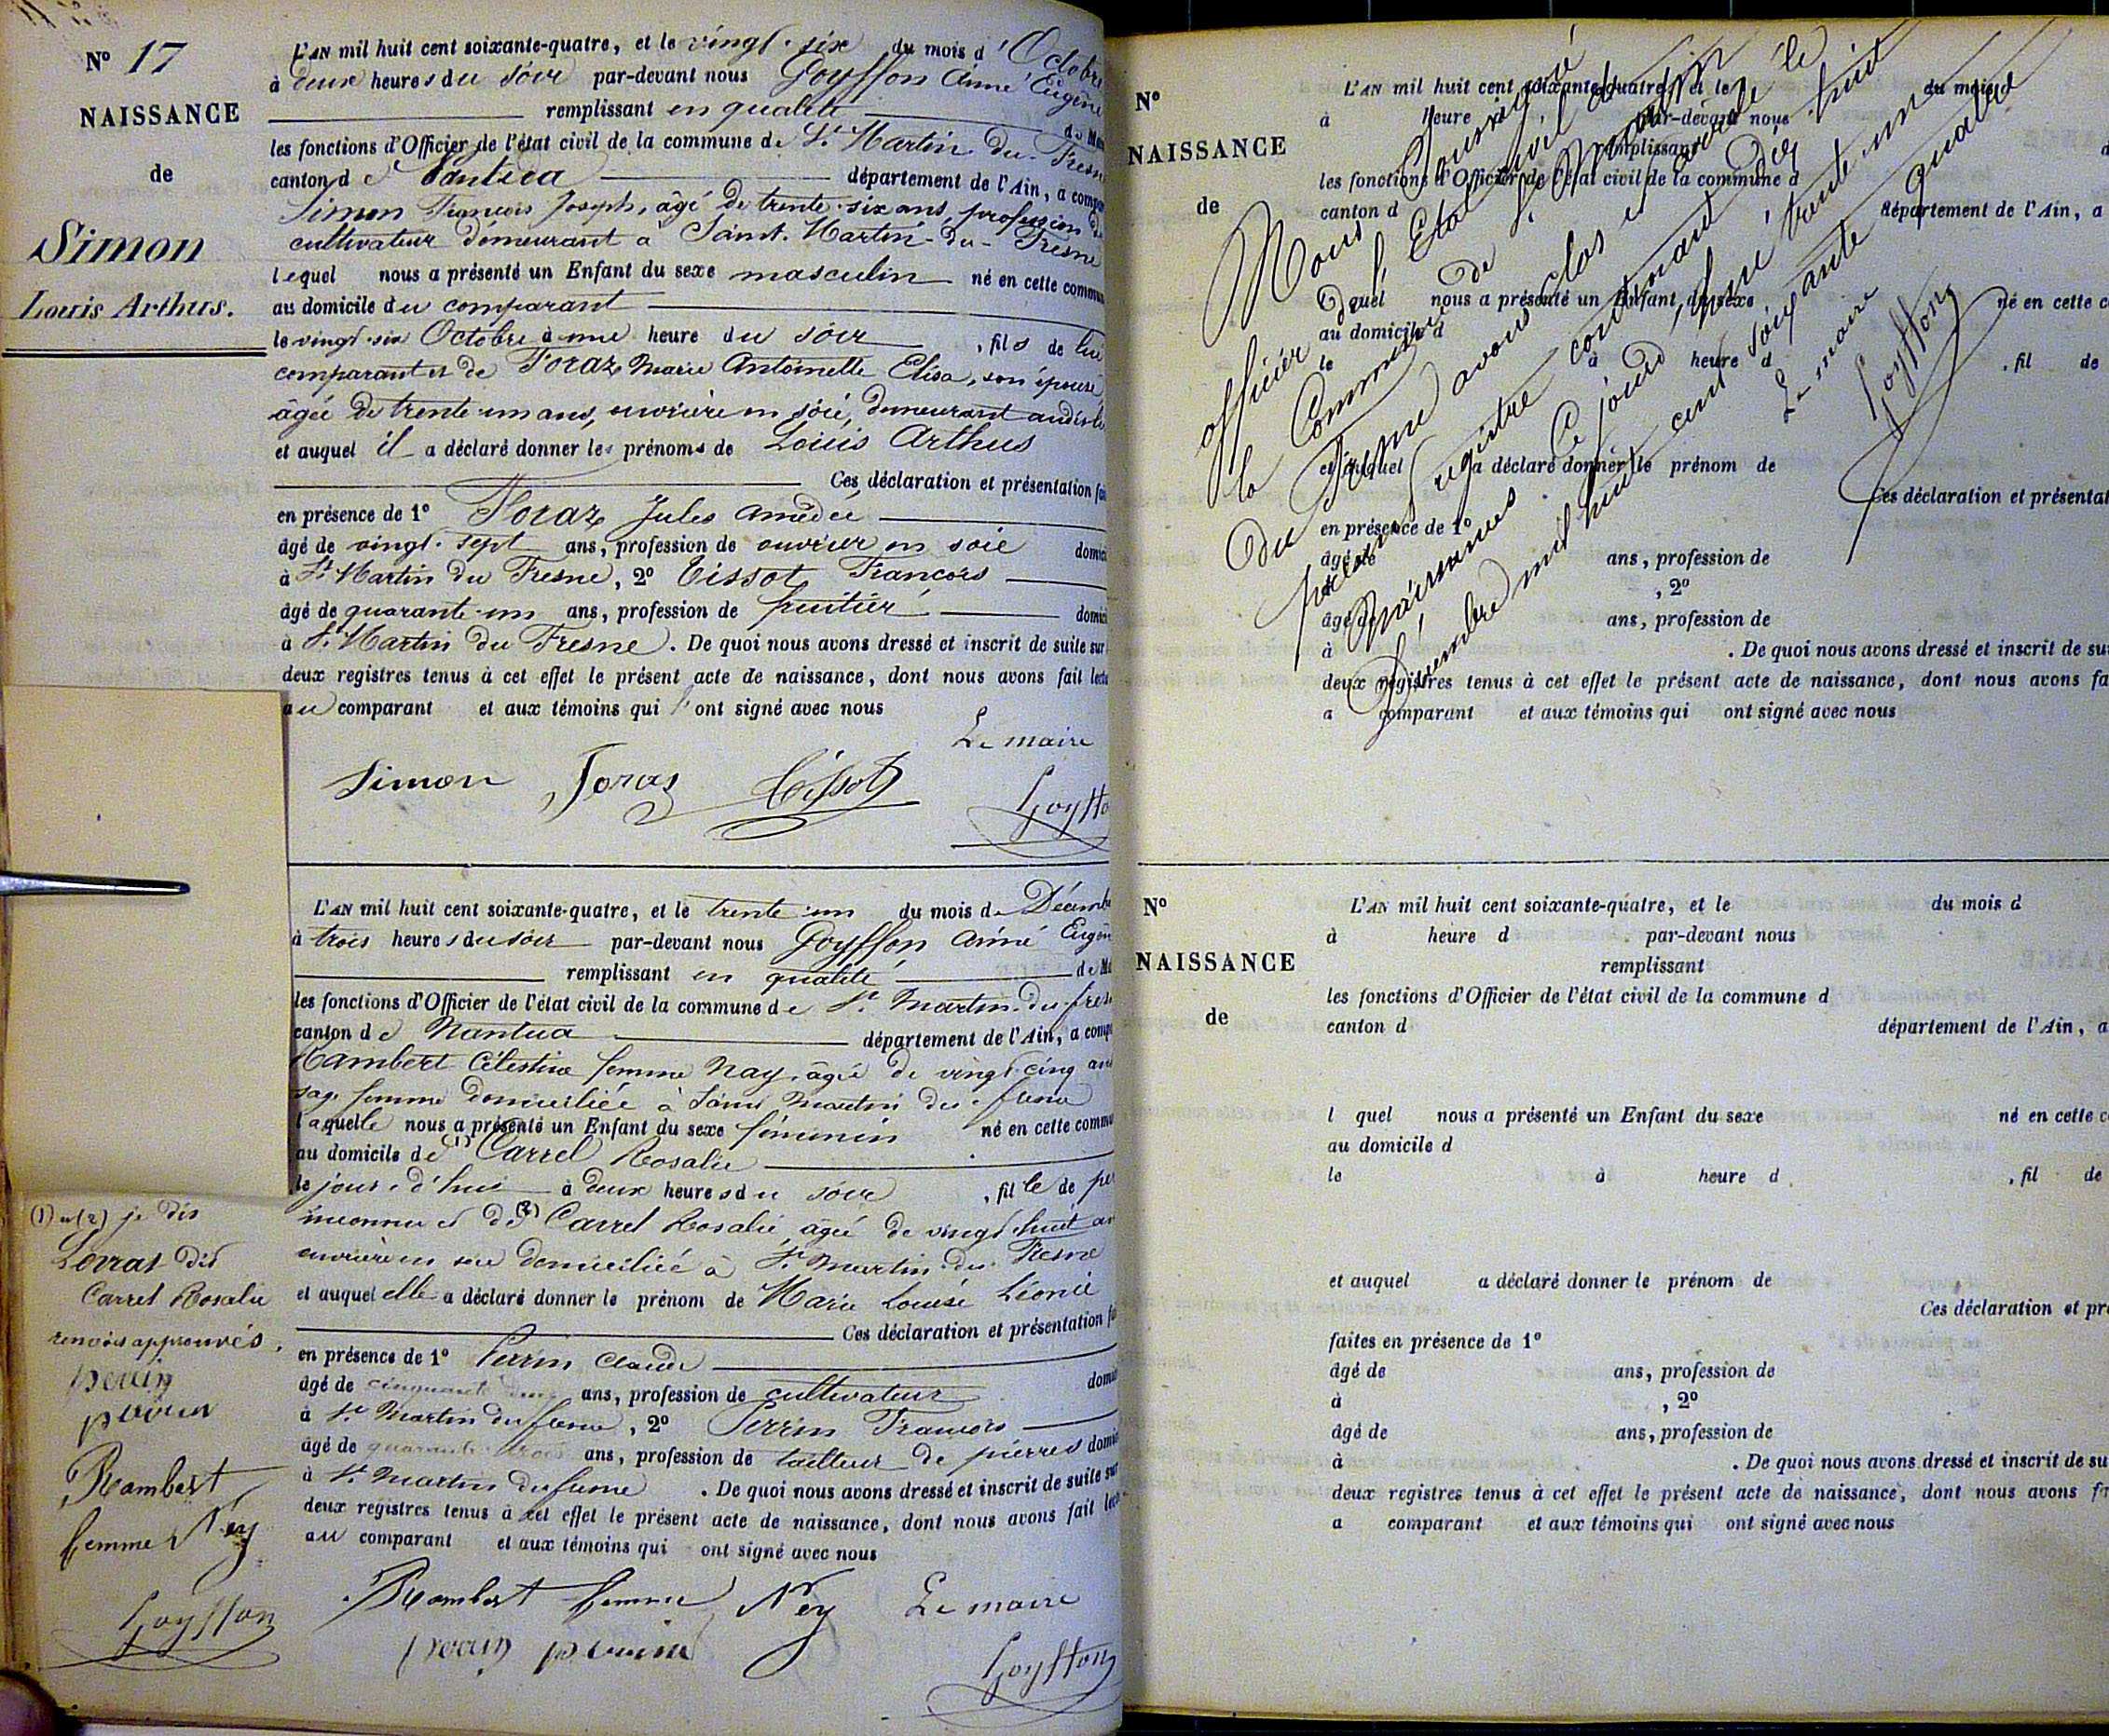 N° 17
NAISSANCE
de
Simon
Louis Arthus.
L'AN mil huit cent soixante-quatre, et le vingt-six du mois d'Octobre
à deux heures du soir par-devant nous Goyffon Aimé Eugène
remplissant en qualité de M
les fonctions d'Officier de l'état civil de la commune de St Martin-du-Fresne
canton de Nantua département de l'Ain, a compa
Simon François Joseph, âgé de trente-six ans, profession de
cultivateur demeurant à Saint-Martin-du-Fresne
lequel nous a présenté un Enfant du sexe masculin né en cette commu
au domicile du comparant
le vingt-six Octobre à une heure du soir, fils de lui
comparant et de Toraz Marie Antoinette Elisa, son épouse
âgée de trente-un ans, ouvrière en soie, demeurant audit li
et auquel il a déclaré donner les prénoms de Louis Arthus
Ces déclaration et présentation fa
en présence de 1° Toraz Jules Amédée
âgé de vingt-sept ans, profession de ouvrier en soie domici
à St Martin du Fresne, 2° Tissot François
âgé de quarante-un ans, profession de fruitier domici
à St Martin du Fresne. De quoi nous avons dressé et inscrit de suite sur
deux registres tenus à cet effet le présent acte de naissance, dont nous avons fait lectu
au comparant et aux témoins qui ont signé avec nous
Le maire
Simon Toraz Tissot Goyffo
L'AN mil huit cent soixante-quatre, et le trente-un du mois de Décemb
à trois heures du soir par-devant nous Goyffon Aimé Eugèn
remplissant en qualité de M
les fonctions d'Officier de l'état civil de la commune de St Martin-du-fres
canton de Nantua département de l'Ain, a comp
Rambert Célestine femme Nay, âgée de vingt-cinq an
sage femme domiciliée à Saint Martin du fresne
laquelle nous a présenté un Enfant du sexe féminin né en cette commu
au domicile de (1) Carrel Rosalie
le jour d'hui à deux heures du soir, fille de pè
inconnu et de (2) Carrel Rosalie, âgée de vingt-huit an
ouvrière en soie domiciliée à St Martin-du-Fresne
et auquel elle a déclaré donner le prénom de Marie Louise Léonie
Ces déclaration et présentation fa
en présence de 1° Perrin Claude
âgé de cinquante deux ans, profession de cultivateur domi
à St Martin du fresne, 2° Perrin François
âgé de quarante-trois ans, profession de tailleur de pierres domi
à St Martin du fresne. De quoi nous avons dressé et inscrit de suite sur
deux registres tenus à cet effet le présent acte de naissance, dont nous avons fait lect
au comparant et aux témoins qui ont signé avec nous
Rambert femme Ney Le maire
perrin Goyffon
(1) et (2) je dis
Levrat dit
Carrel Rosalie
renvois approuvés,
Rambert
femme Ney
Goyffon
N°
NAISSANCE
de
L'AN mil huit cent soixante-quatre, et le du mois d
à heure d par-devant nous
remplissant
les fonctions d'Officier de l'état civil de la commune d
canton d département de l'Ain, a
l quel nous a présenté un Enfant du sexe né en cette c
au domicile d
le à heure d , fil de
et auquel a déclaré donner le prénom de
Ces déclaration et présentat
en présence de 1°
âgé de ans, profession de
à , 2°
âgé de ans, profession de
à . De quoi nous avons dressé et inscrit de su
deux registres tenus à cet effet le présent acte de naissance, dont nous avons fa
a comparant et aux témoins qui ont signé avec nous
Nous
officier de l'Etat civil de
la Commune de St Martin
du Fresne avons clos et arrêté le
présent registre contenant dix huit
Naissances Ce jourd'hui trente-un
Décembre mil huit cent soixante quatre
Le maire
Goyffon
N°
NAISSANCE
de
L'AN mil huit cent soixante-quatre, et le du mois d
à heure d par-devant nous
remplissant
les fonctions d'Officier de l'état civil de la commune d
canton d département de l'Ain, a
l quel nous a présenté un Enfant du sexe né en cette c
au domicile d
le à heure d , fil de
et auquel a déclaré donner le prénom de
Ces déclaration et pré
faites en présence de 1°
âgé de ans, profession de
à , 2°
âgé de ans, profession de
à . De quoi nous avons dressé et inscrit de su
deux registres tenus à cet effet le présent acte de naissance, dont nous avons f
a comparant et aux témoins qui ont signé avec nous